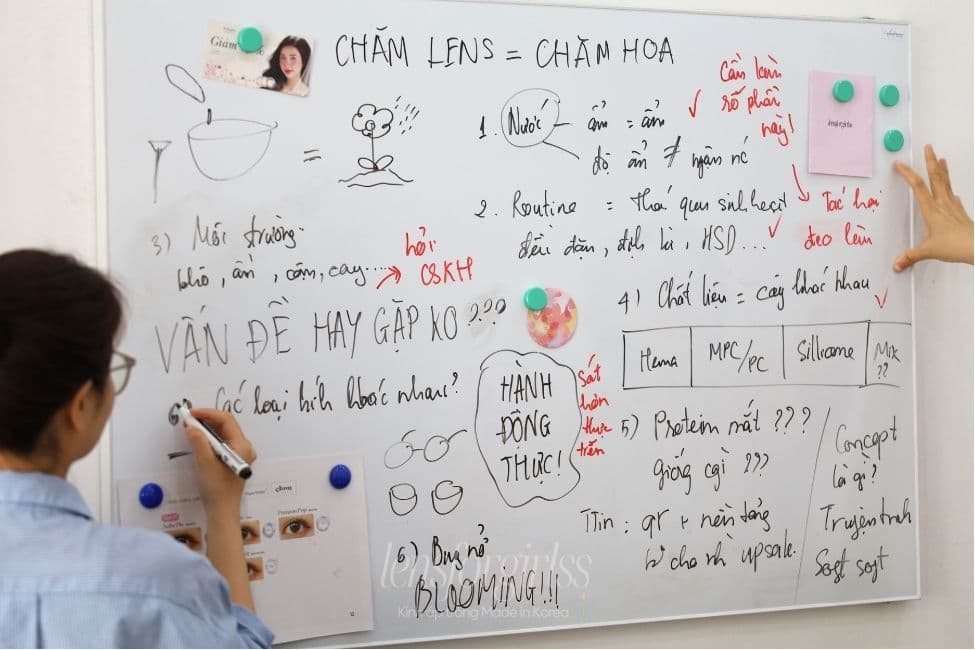 Giảm
CHĂM LENS = CHĂM HOA
1. Nước – ẩm = ẩm
độ ẩn ≠ ngân nc
✓ Cần làm
rõ phần
này!
lensforgirlss
2. Routine = thói quen sinh hoạt
đều đặn, định kì, HSD...
✓
Tác hại
đeo lên
3) Môi trường:
khô, ẩm, cộm, cay...
hỏi
CSKH
VẤN ĐỀ HAY GẶP KO???
Các loại kính khác nhau?
HÀNH
ĐỘNG
THỰC!
Sát
hơn
thực
tiễn
4) Chất liệu = cây khác nhau
✓
Hema
MPC/PC
Sillicone
Mix
??
5) Protein mắt ???
giống cái gì ???
TTin : qr + nền tảng
upsale.
Concept
là gì?
Truyện tranh
Soạt soạt
6) Bung nở
BLOOMING!!!
lensforgirlss
Kính áp tròng Made in Korea
clalen
12